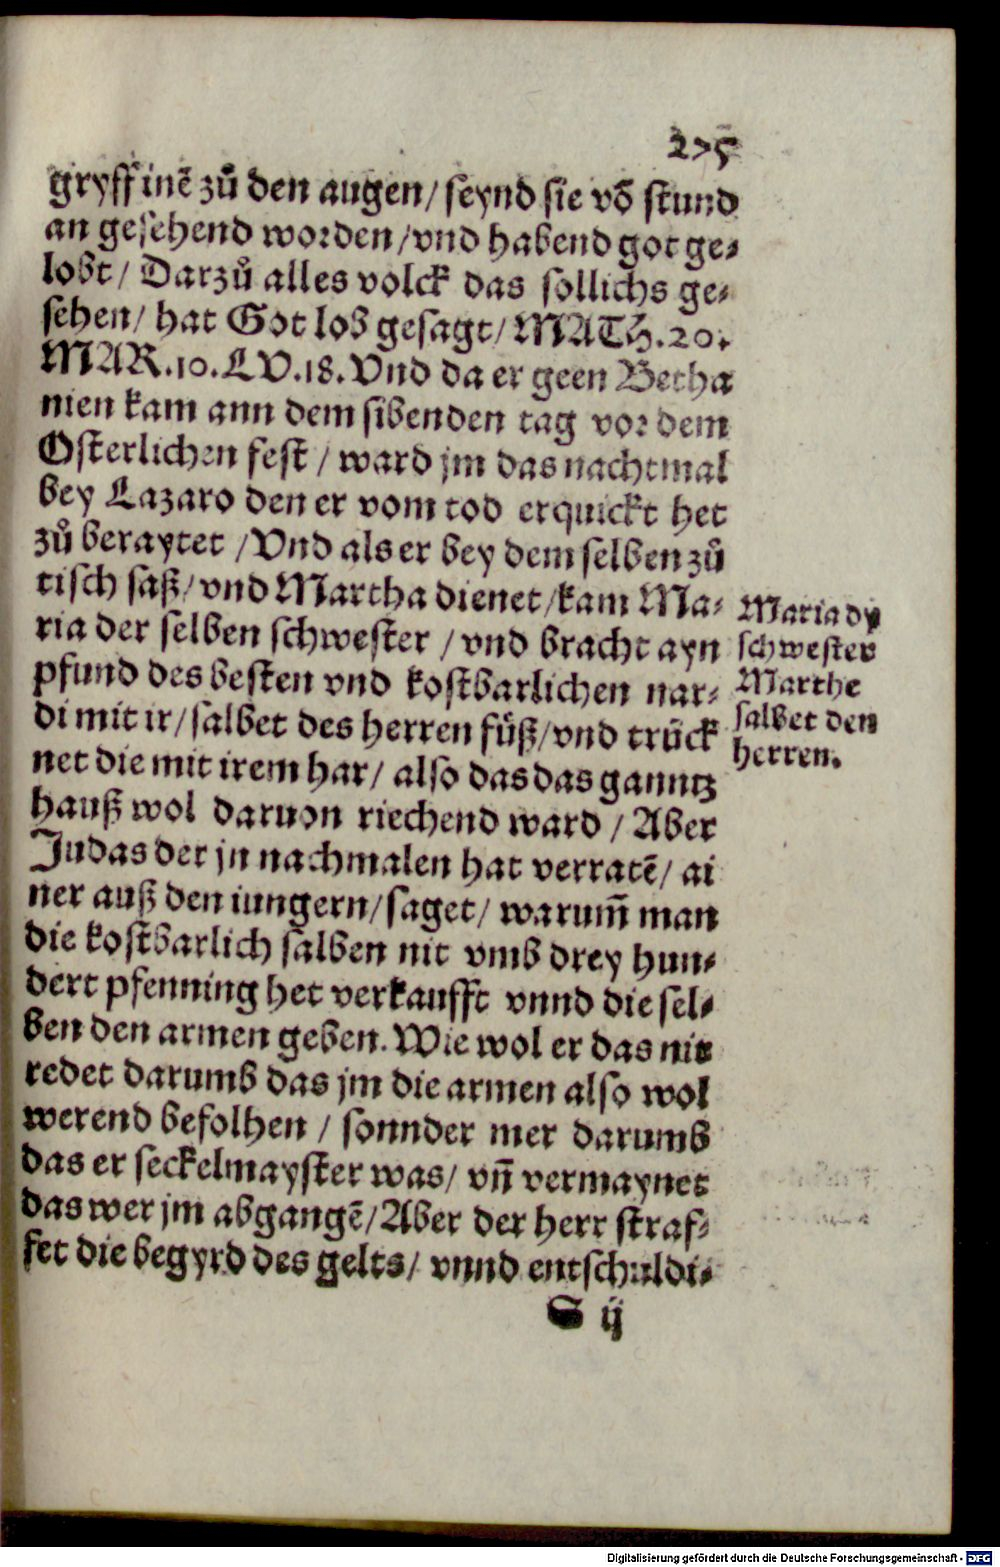 275
gryff inē zů den augen/ seynd sie vō stund
an gesehend worden/vnd habend got ge⸗
lobt/ Darzů alles volck das sollichs ge⸗
sehen/ hat Got lob gesagt/ MATH.20.
MAR.10.LV.18.Vnd da er geen Betha
nien kam ann dem sibenden tag vor dem
Osterlichen fest / ward jm das nachtmal
bey Lazaro den er vom tod erquickt het
zů beraytet /Vnd als er bey dem selben zů
tisch saß/ vnd Martha dienet/kam Ma⸗
ria der selben schwester / vnd bracht ayn
pfund des besten vnd kostbarlichen nar⸗
di mit ir/ salbet des herren fůß/vnd trück
net die mit irem har/ also das das ganntz
hauß wol daruon riechend ward / Aber
Judas der jn nachmalen hat verratē/ ai
ner auß den iungern/saget/ warum̄ man
die kostbarlich salben nit vmb drey hun⸗
dert pfenning het verkaufft vnnd die sel⸗
ben den armen geben. Wie wol er das nit
redet darumb das jm die armen also wol
werend befolhen / sonnder mer darumb
das er seckelmayster was/ vn̄ vermaynet
das wer jm abgangē/Aber der herr straf⸗
fet die begyrd des gelts/ vnnd entschuldi⸗
S ij
Maria dy
schwester
Marthe
salbet den
herren.
Digitalisierung gefördert durch die Deutsche Forschungsgemeinschaft - DFG